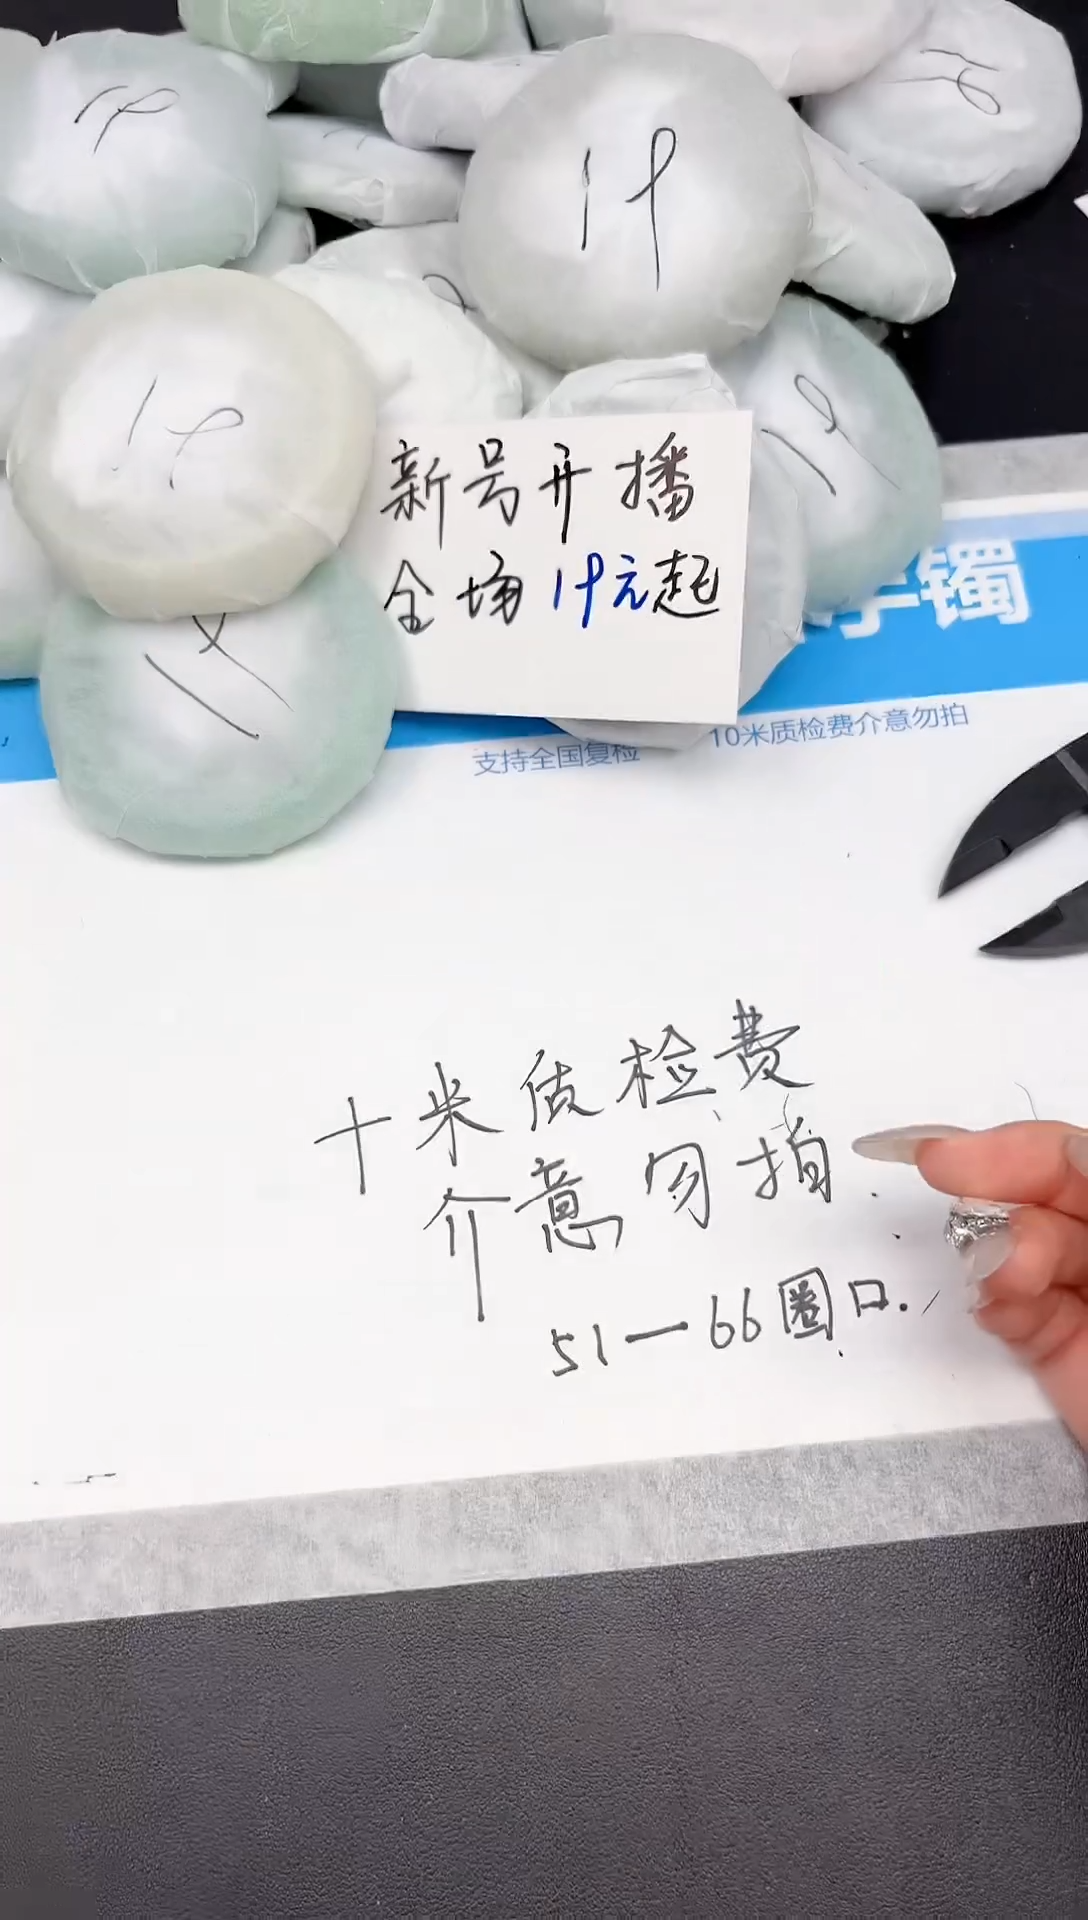 新号开播
全场1十元起
手镯
支持全国复检
10米质检费介意勿拍
十米质检费
介意勿拍
51一66圈口.